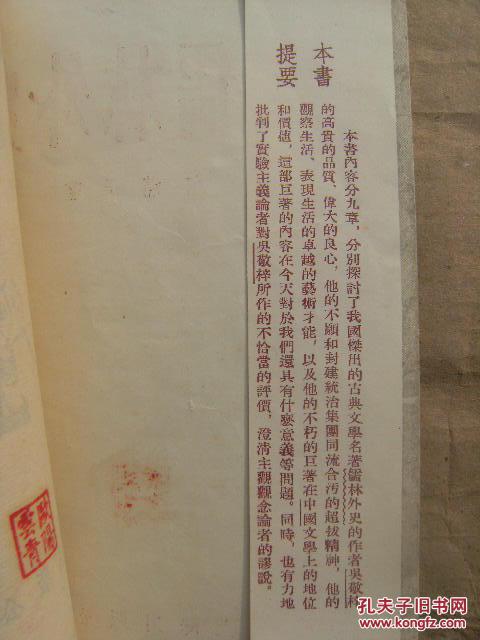 本書
提要
本書內容分九章，分別探討了我國傑出的古典文學名著儒林外史的作者吳敬梓
的高貴的品質、偉大的良心，他的不願和封建統治集團同流合污的超拔精神，他的
觀察生活、表現生活的卓越的藝術才能，以及他的不朽的巨著在中國文學上的地位
和價値，這部巨著的內容在今天對於我們還具有什麼意義等問題。同時，也有力地
批判了實驗主義論者對吳敬梓所作的不恰當的評價，澄清主觀觀念論者的謬說。
孔夫子旧书网